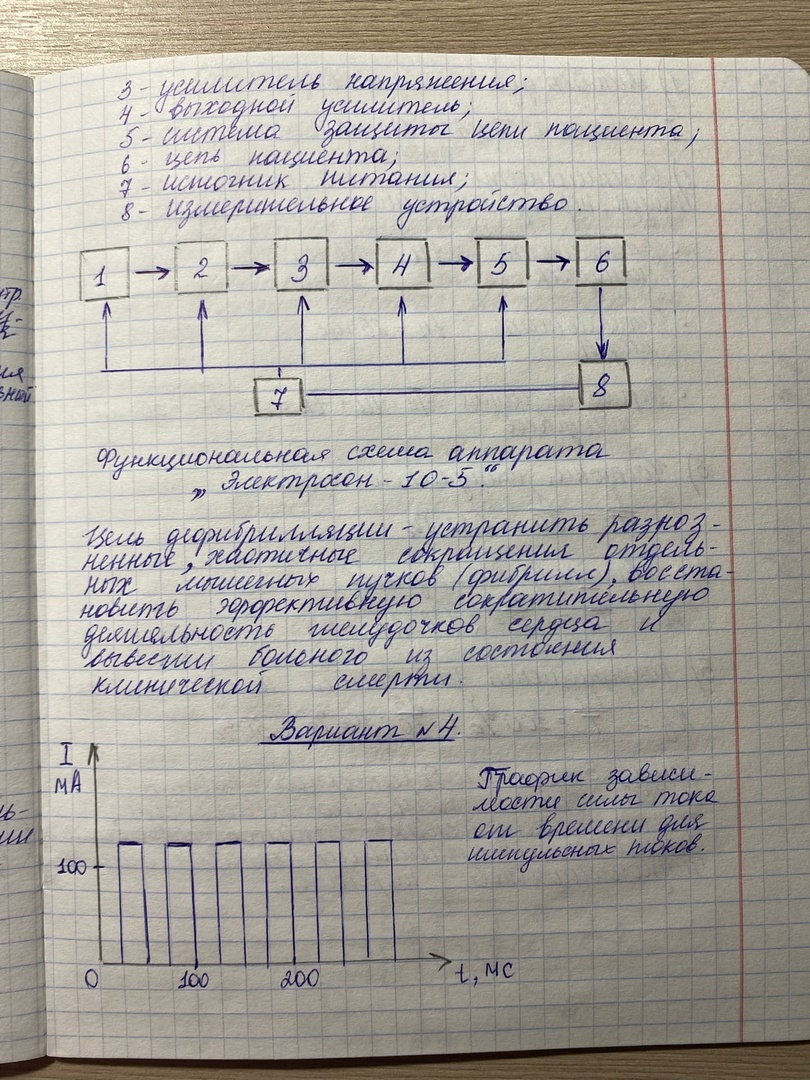 3 - усилитель напряжения;
4 - выходной усилитель;
5 - система защиты цепи пациента;
6 - цепь пациента;
7 - источник питания;
8 - измерительное устройство.
1 2 3 4 5 6
7 8
Функциональная схема аппарата
„Электросон - 10-5."
Цель дефибрилляции - устранить разроз-
ненные, хаотичные сокращения отдель-
ных мышечных пучков (фибрилл), восста-
новить эффективную сократительную
деятельность желудочков сердца и
вывести больного из состояния
клинической смерти.
Вариант №4.
I
мА
График зависи-
мости силы тока
от времени для
импульсных токов.
100
0 100 200 t, мс